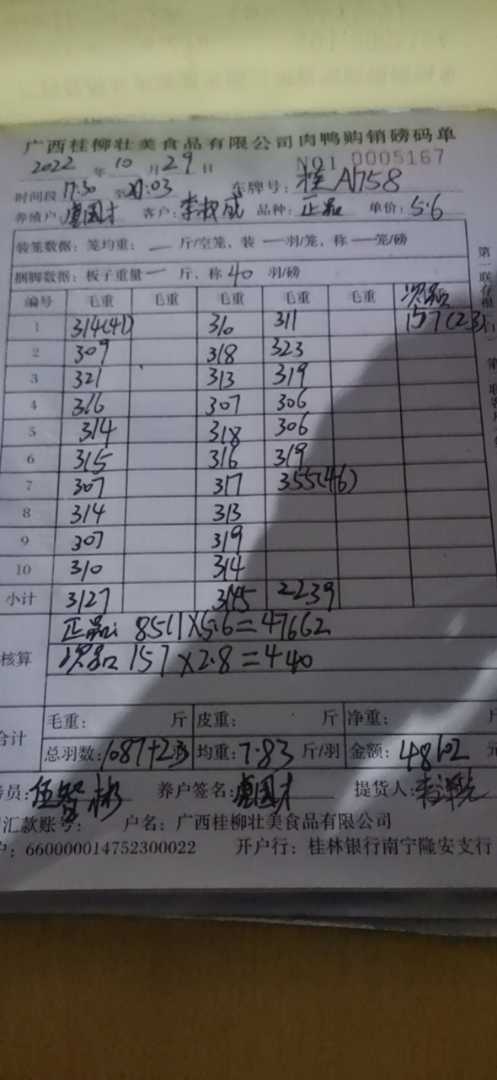 广西桂柳壮美食品有限公司肉鸭购销磅码单
2022 年 10 月 29 日 NO1 0005167
时间段 17:30 至 :03 车牌号: 桂A1758
养殖户: 客户: 李权威 品种: 正品 单价: 5.6
装笼数据: 笼均重: — 斤/空笼、装 — 羽/笼、称 — 笼/磅
捆脚数据: 板子重量 — 斤、称 40 羽/磅
编号 毛重 毛重 毛重 毛重 毛重 次品
1 314(41) 310 311 157(23)
2 309 318 323
3 321 313 319
4 316 307 306
5 314 318 306
6 315 316 319
7 307 317 355(46)
8 314 313
9 307 319
10 310 314
小计 3127 3145 2239
正品: 8511×5.6=47662
核算 次品 157×2.8=440
合计 毛重: 斤 皮重: 斤 净重:
总羽数: 1087+23 均重: 7.83 斤/羽 金额: 48102 元
员: 伍智彬 养户签名: 提货人:
汇款账号: 户名: 广西桂柳壮美食品有限公司
户: 660000014752300022 开户行: 桂林银行南宁隆安支行
第一联存根